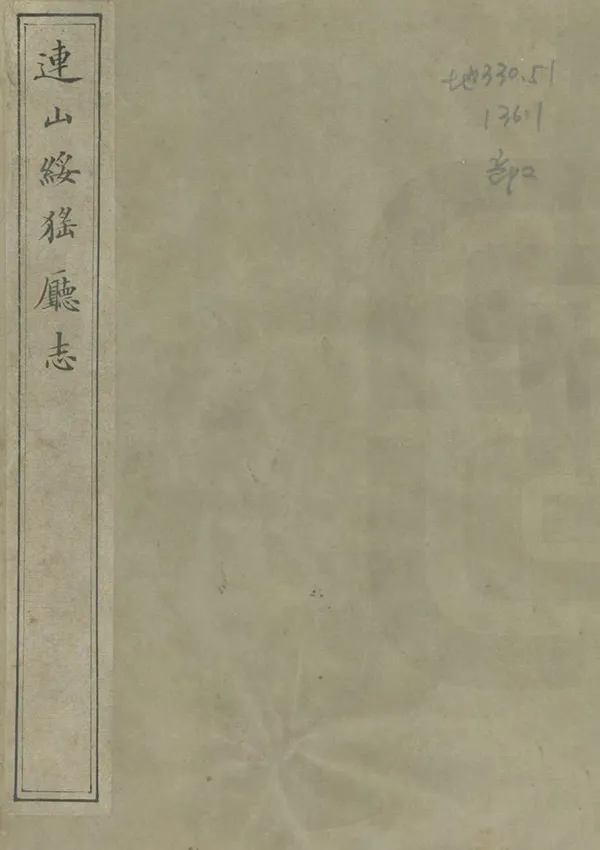 連山綏猺廳志
地330.51
136.1